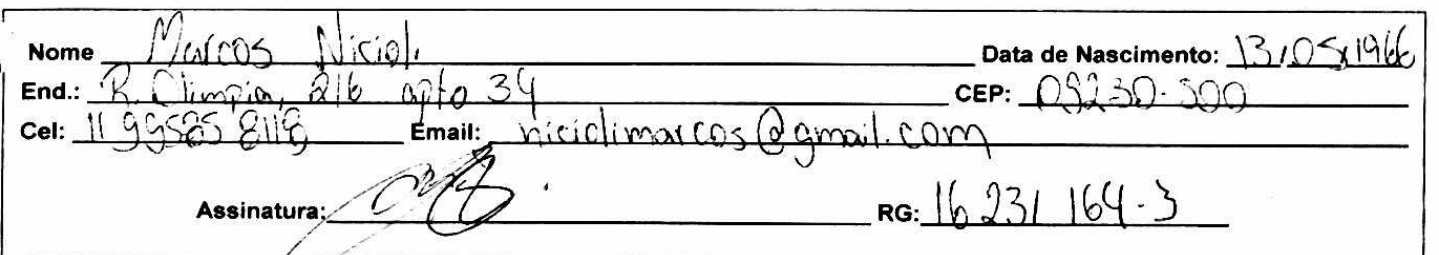 Nome Marcos Nicioli Data de Nascimento: 13/05/1966
End.: R. Olimpia, 216 apto 34 CEP: 09230-500
Cel: 11 99585 8118 Email: niciolimarcos@gmail.com
Assinatura: RG: 16 231 164-3